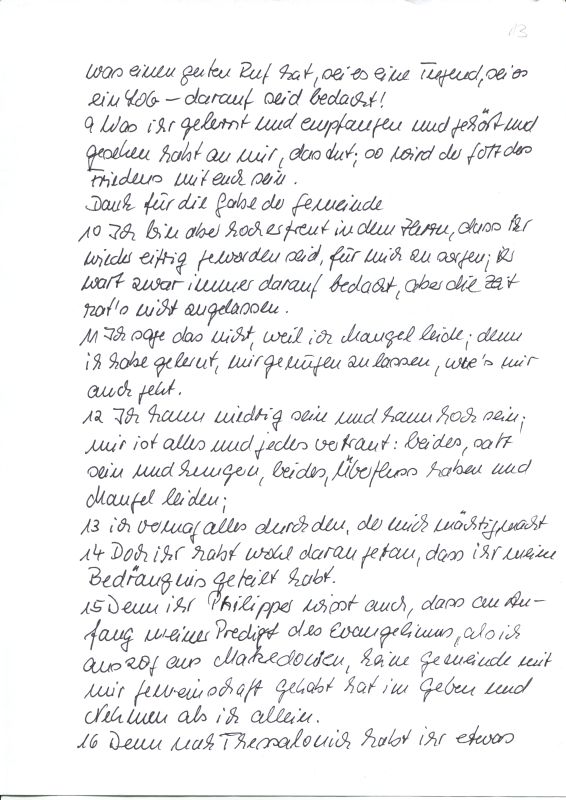 13
was einen guten Ruf hat, sei es eine Tugend, sei es
ein Lob – darauf seid bedacht!
9 Was ihr gelernt und empfangen und gehört und
gesehen habt an mir, das tut; so wird der Gott des
Friedens mit euch sein.
Dank für die Gabe der Gemeinde
10 Ich bin aber hoch erfreut in dem Herrn, dass ihr
wieder eifrig geworden seid, für mich zu sorgen; ihr
wart zwar immer darauf bedacht, aber die Zeit
hat's nicht zugelassen.
11 Ich sage das nicht, weil ich Mangel leide; denn
ich habe gelernt, mir genügen zu lassen, wie's mir
auch geht.
12 Ich kann niedrig sein und kann hoch sein;
mir ist alles und jedes vertraut: beides, satt
sein und hungern, beides, Überfluss haben und
Mangel leiden;
13 ich vermag alles durch den, der mich mächtig macht
14 Doch ihr habt wohl daran getan, dass ihr meine
Bedrängnis geteilt habt.
15 Denn ihr Philipper wisst auch, dass am An-
fang meiner Predigt des Evangeliums, als ich
auszog aus Makedonien, keine Gemeinde mit
mir Gemeinschaft gehabt hat im Geben und
Nehmen als ihr allein.
16 Denn nach Thessalonich habt ihr etwas